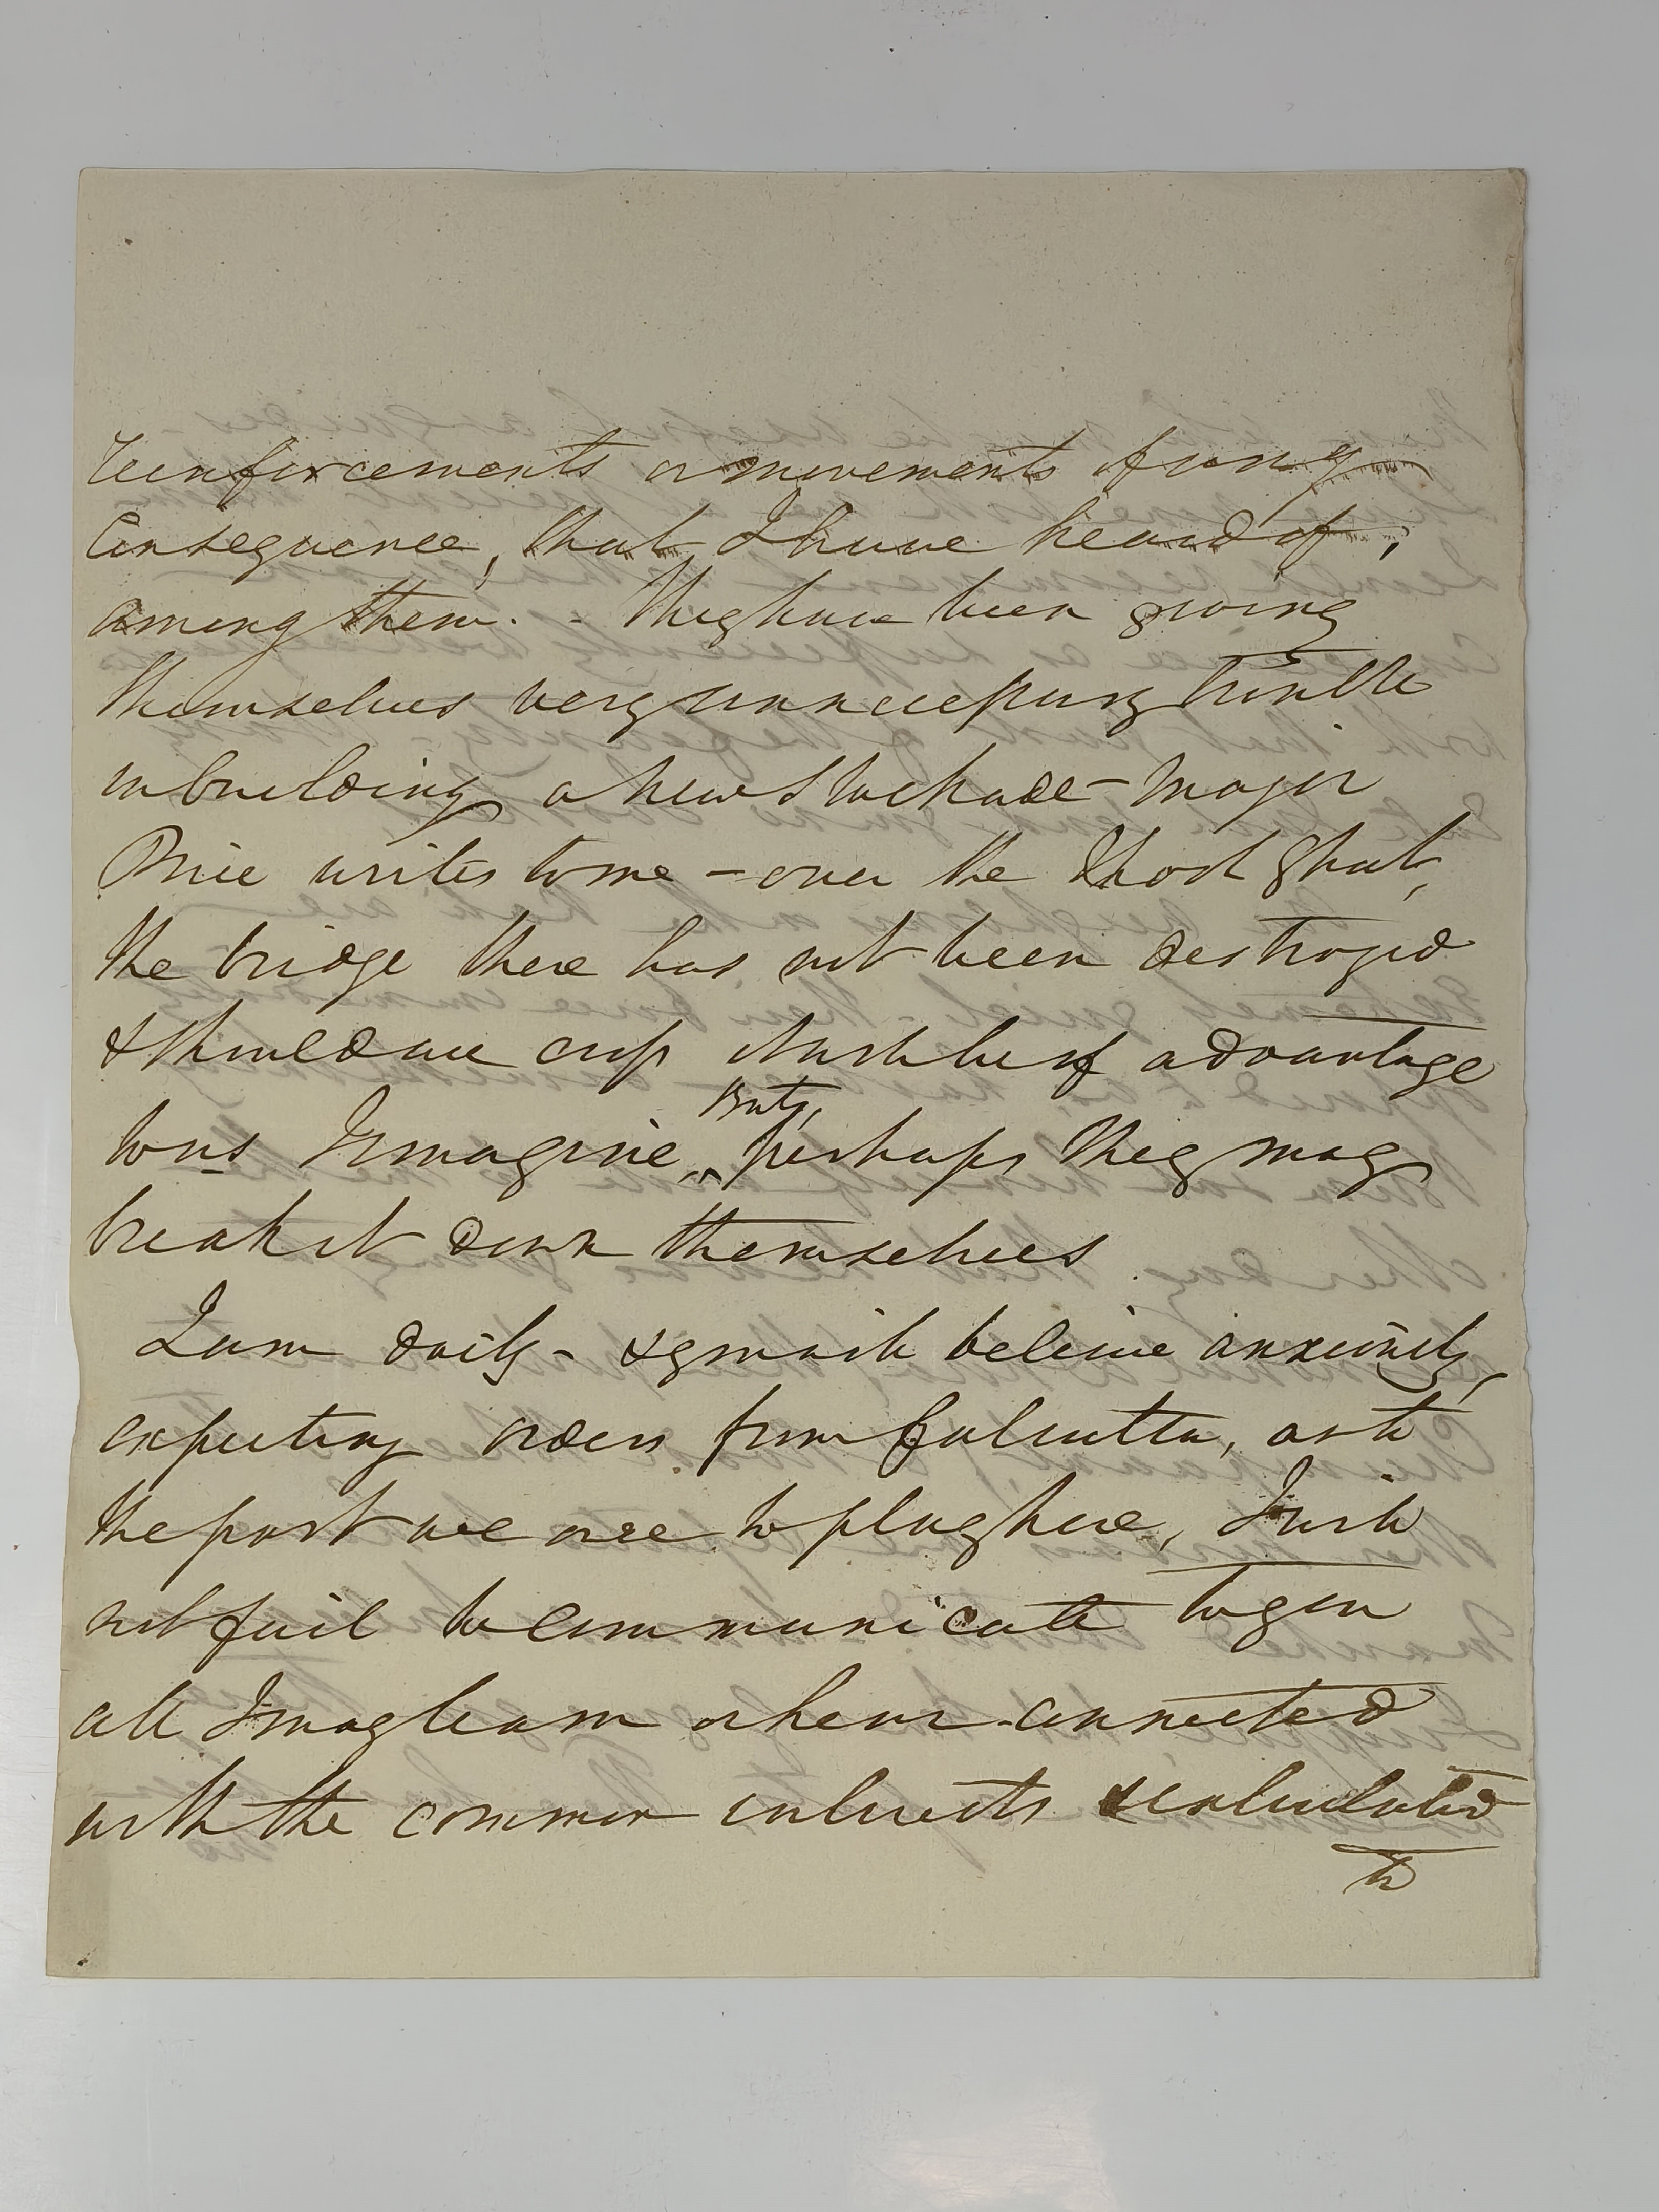 reinforcements or movements of any
Consequence, that I have heard of,
among them. - They have been giving
themselves very unnecessary trouble
in building a new Stockade - Major
Price writes to me - over the Ghat,
the bridge there has not been destroyed
& should we cross it will be of advantage
to us I imagine, but, perhaps they may
break it down themselves.
I am daily - & you will believe anxiously,
expecting orders from Calcutta, as to
the part we are to play here, I will
not fail to communicate to you
all I may learn or hear connected
with the common interests & calculated
to